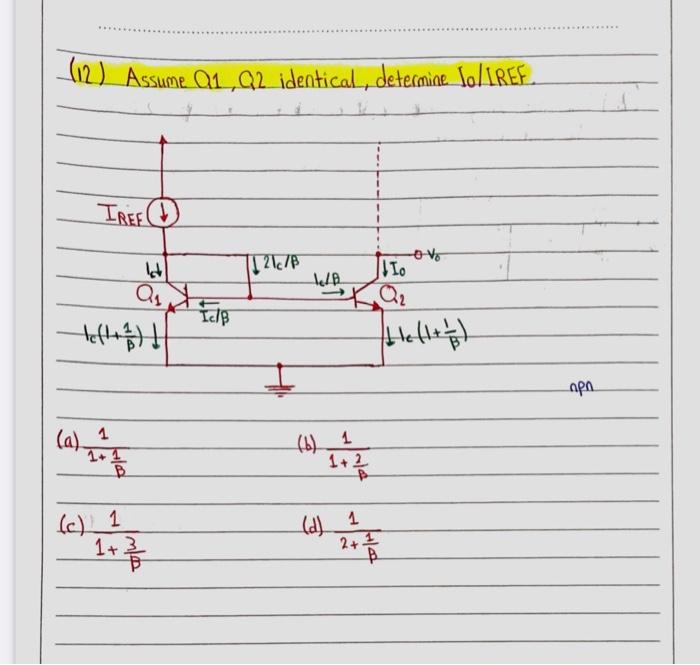 (12) Assume Q1, Q2 identical, determine Io/IREF.
IREF
2Ic/β
Vo
Ic
Ic/β
Io
Q1
Q2
Ic/β
Ic(1+1/β)
Ic(1+1/β)
npn
(a) 1/(1+1/β)
(b) 1/(1+2/β)
(c) 1/(1+3/β)
(d) 1/(2+1/β)